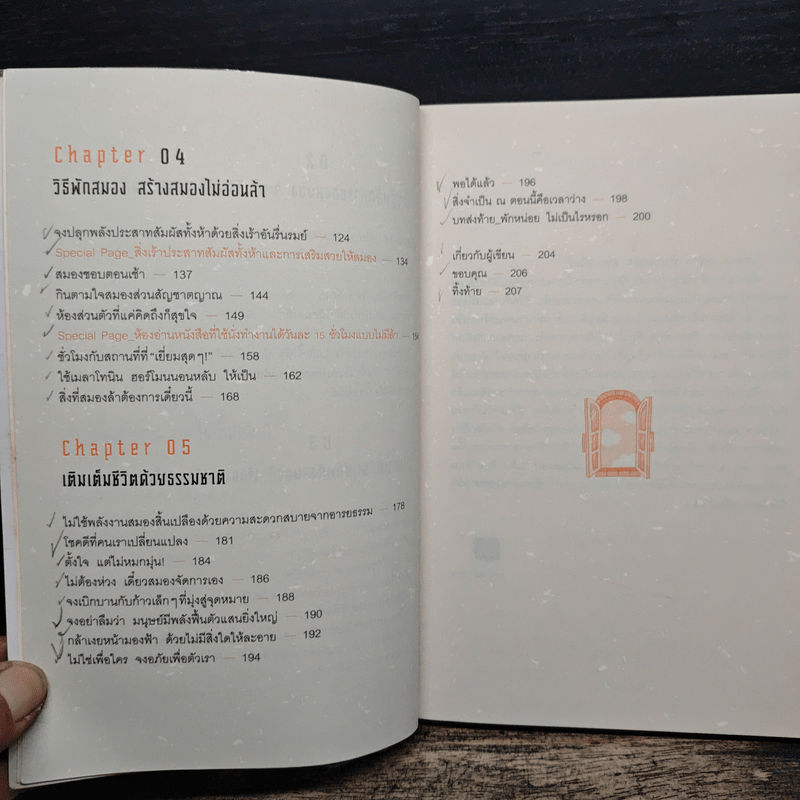 Chapter 04
วิธีพักสมอง สร้างสมองไม่อ่อนล้า
จงปลุกพลังประสาทสัมผัสทั้งห้าด้วยสิ่งเร้าอันรื่นรมย์ — 124
Special Page_สิ่งเร้าประสาทสัมผัสทั้งห้าและการเสริมสวยให้สมอง — 134
สมองชอบตอนเช้า — 137
กินตามใจสมองส่วนสัญชาตญาณ — 144
ห้องส่วนตัวที่แค่คิดถึงก็สุขใจ — 149
Special Page_ห้องอ่านหนังสือที่ใช้นั่งทำงานได้วันละ 15 ชั่วโมงแบบไม่มีล้า —
ชั่วโมงกับสถานที่ที่“เยี่ยมสุดๆ!” — 158
ใช้เมลาโทนิน ฮอร์โมนนอนหลับ ให้เป็น — 162
สิ่งที่สมองล้าต้องการเดี๋ยวนี้ — 168
Chapter 05
เติมเต็มชีวิตด้วยธรรมชาติ
ไม่ใช้พลังงานสมองสิ้นเปลืองด้วยความสะดวกสบายจากอารยธรรม — 178
โชคดีที่คนเราเปลี่ยนแปลง — 181
ตั้งใจ แต่ไม่หมกมุ่น! — 184
ไม่ต้องห่วง เดี๋ยวสมองจัดการเอง — 186
จงเบิกบานกับก้าวเล็กๆที่มุ่งสู่จุดหมาย — 188
จงอย่าลืมว่า มนุษย์มีพลังฟื้นตัวแสนยิ่งใหญ่ — 190
กล้าเงยหน้ามองฟ้า ด้วยไม่มีสิ่งใดให้ละอาย — 192
ไม่ใช่เพื่อใคร จงอภัยเพื่อตัวเรา — 194
พอได้แล้ว — 196
สิ่งจำเป็น ณ ตอนนี้คือเวลาว่าง — 198
บทส่งท้าย_พักหน่อย ไม่เป็นไรหรอก — 200
เกี่ยวกับผู้เขียน — 204
ขอบคุณ — 206
ทิ้งท้าย — 207